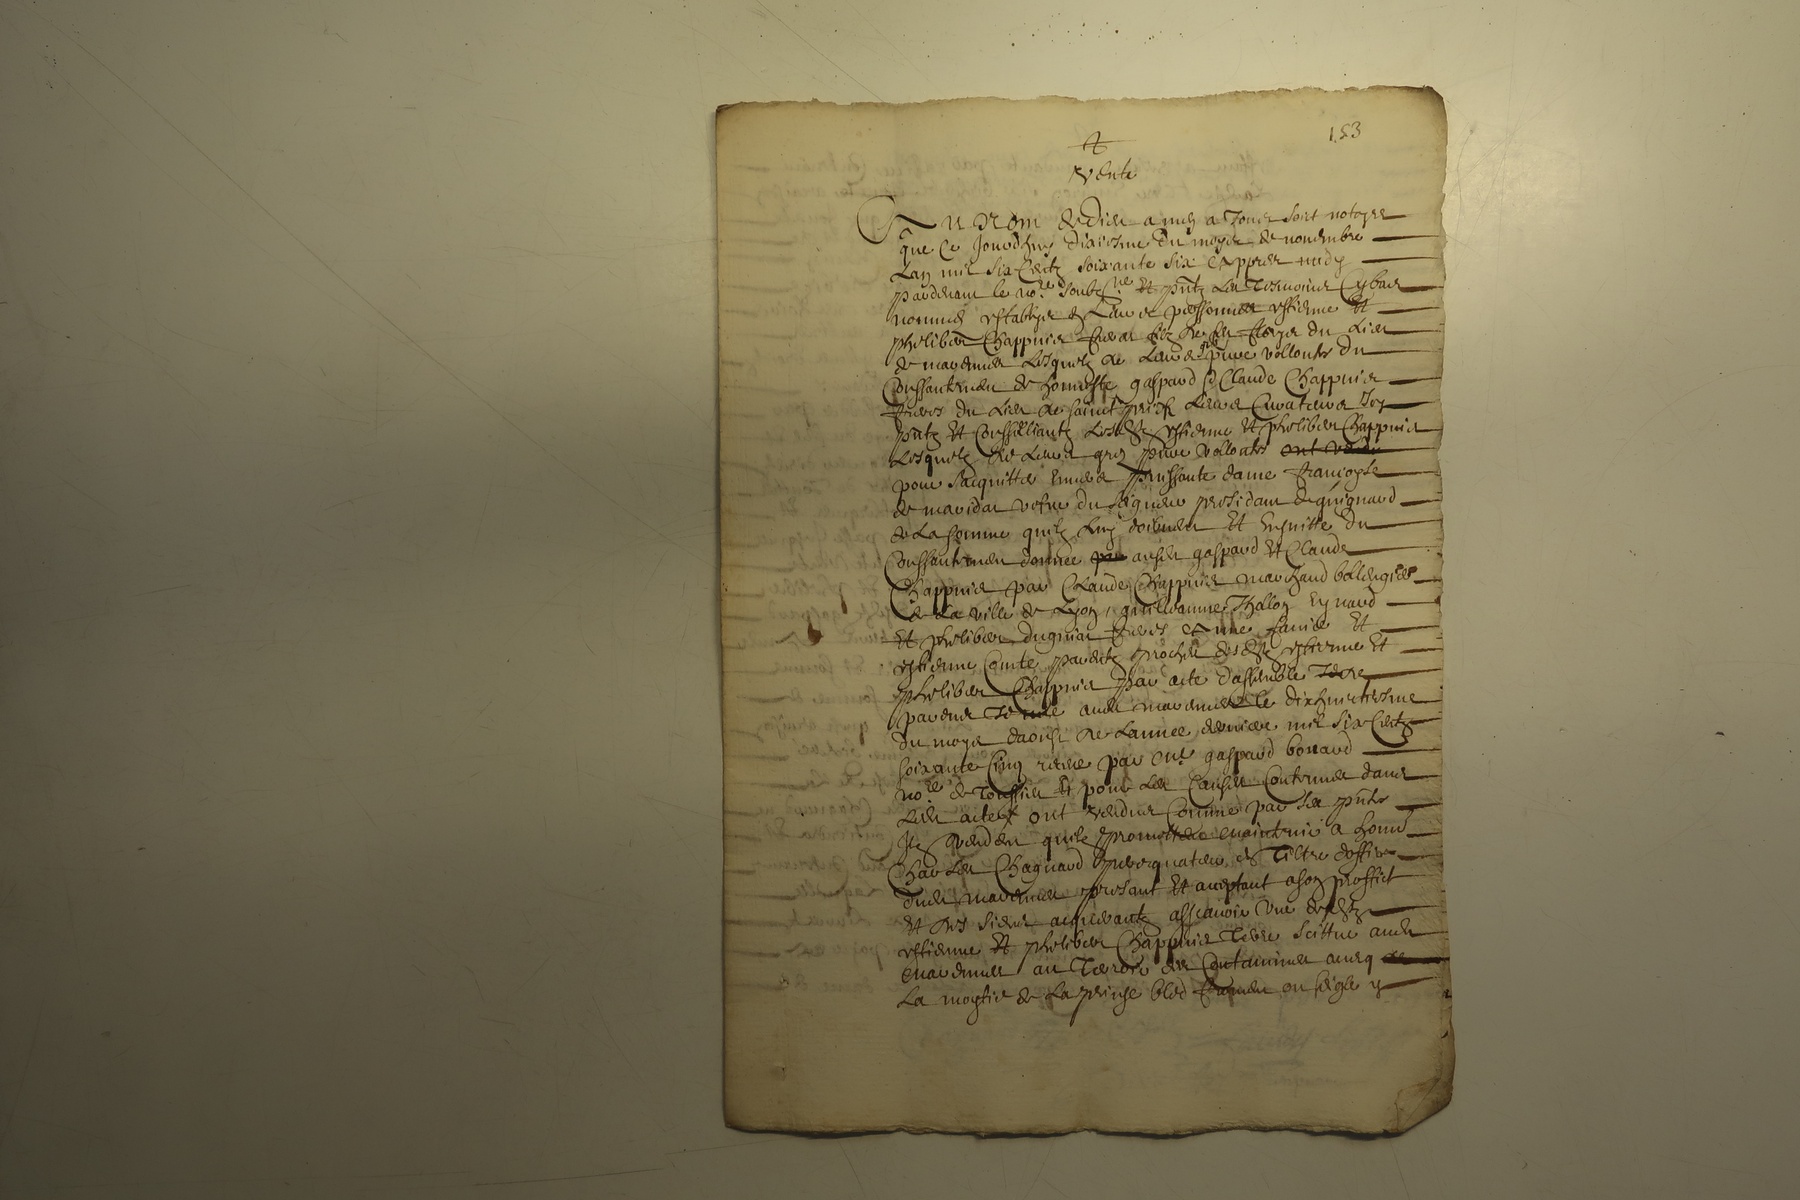 153
Vente
Au Nom de Dieu amen a Tous soit notoyre
que ce Jourdhuy dixiesme du moys de novembre
Lan mil six Centz soixante six et appres midy
pardevant le no.re soubz.ne et pntz Les Tesmoins Cybas
nommes establys en Leurs personnes estienne Et
phelibert Chappuis freres filz de feu du Lieu
de marennes Lesquelz de Leurs pure vollonte du
Conssantemen de honneste gaspard et Claude Chappuis
freres du Lieu de sainct Leurs Curateurs Icy
pntz Et Conssilliantz Lesdtz estienne Et phelibert Chappuis
Lesquelz de Leurs gres pure vollonte ont vendu
pour sacquitter Envers puissante dame francoyse
de maridat vefve du seigneur presidant de guignard
de La somme quilz Luy doibvent Et Ensuitte du
Conssantemen donnee par ausdt gaspard Et Claude
Chappuis par Claude Chappuis marchand bollengier
de La ville de Lyon, guilleaume Thallon Eynard
Et phelibert freres Et
estienne Comte parentz proches desdtz estienne Et
phelibert Chappuis par acte dassemble
pardevt audt marennes le dixhuictiesme
du moys daoust de Lannee derniere mil six Centz
soixante Cinq receu par me gaspard bouvard
no.re de Toussieu Et pour Les Causes Contenues dans
Led acte ont vendus Comme par Les pntes
Ilz vendent quilz promettent maintenir a honn.
Charles Chaguard en Tiltre doffice
dudt marennes presant Et aceptant a son proffict
et des siens acquerantz asscavoir Une desdtz
estienne Et phelibert Chappuis Terre scittue audt
marennes au Terroir des Contamines aveq
La moytie de La prinse bled froment ou seigle y